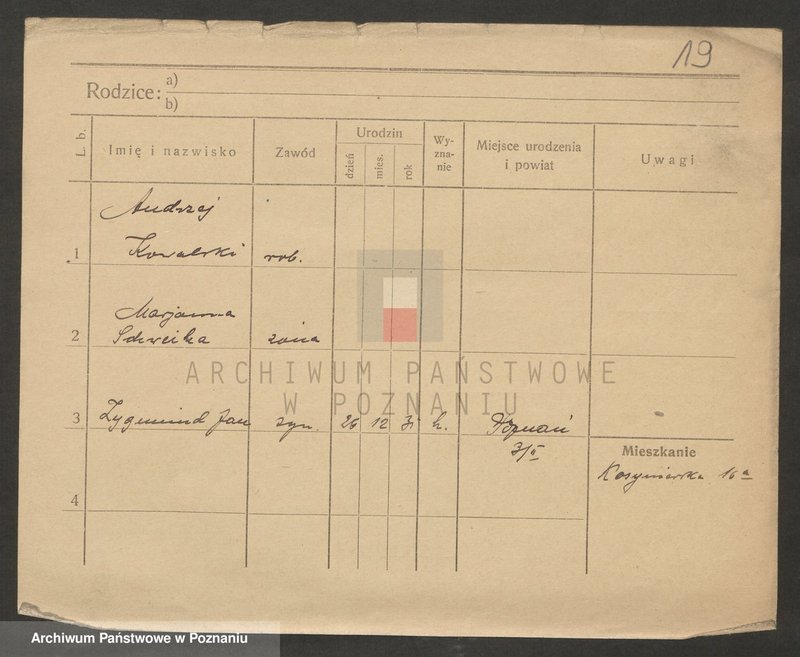 19
Rodzice: a)
b)
L. b.
Imię i nazwisko
Zawód
Urodzin
dzień
mies.
rok
Wy-
zna-
nie
Miejsce urodzenia
i powiat
Uwagi
Andrzej
1 Kowalski rob.
Marjanna
2 żona
3 Zygmund Jan syn. 26 12 31 k. Poznań
3/II
Mieszkanie
16 a
4
ARCHIWUM PAŃSTWOWE
W POZNANIU
Archiwum Państwowe w Poznaniu